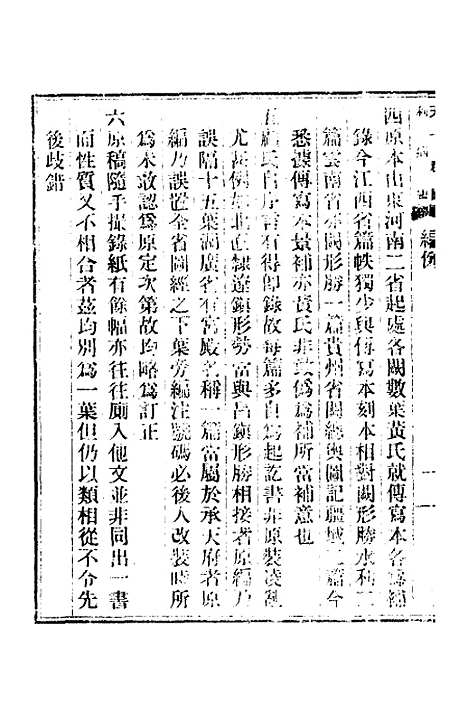 編例
四原本山東河南二省起處各闕數葉黃氏就傳寫本各爲補
錄今江西省篇帙獨少與傳寫本刻本相對闕形勝水利二
篇雲南省亦闕形勝一篇貴州省闕總輿圖記疆域二篇今
悉據傳寫本景補亦黃氏非 僞爲補所當補意也
五顧氏自序云有得卽錄故每篇多自爲起訖書非原裝淩亂
尤甚例如北直隸遼鎮形勢當與昌鎮形勝相接者原編乃
誤隔十五葉湖廣省有宮殿名稱一篇當屬於承天府者原
編乃誤置全省圖經之下葉旁編注號碼必後人改裝時所
爲未敢認爲原定次第故均略爲訂正
六原稿隨手撮錄紙有餘幅亦往往廁入他文並非同出一書
而性質又不相合者茲均別爲一葉但仍以類相從不令先
後歧錯